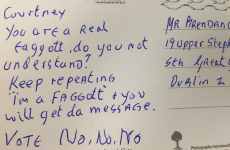 Courtney
You are a Real
Faggott, do you not
understand?
Keep repeating
"I'm a FAGGOTT" + you
will get da message.
VOTE No, No, No
MR BRENDAN C
19 Upper Steph
Sth Great
Dublin 2